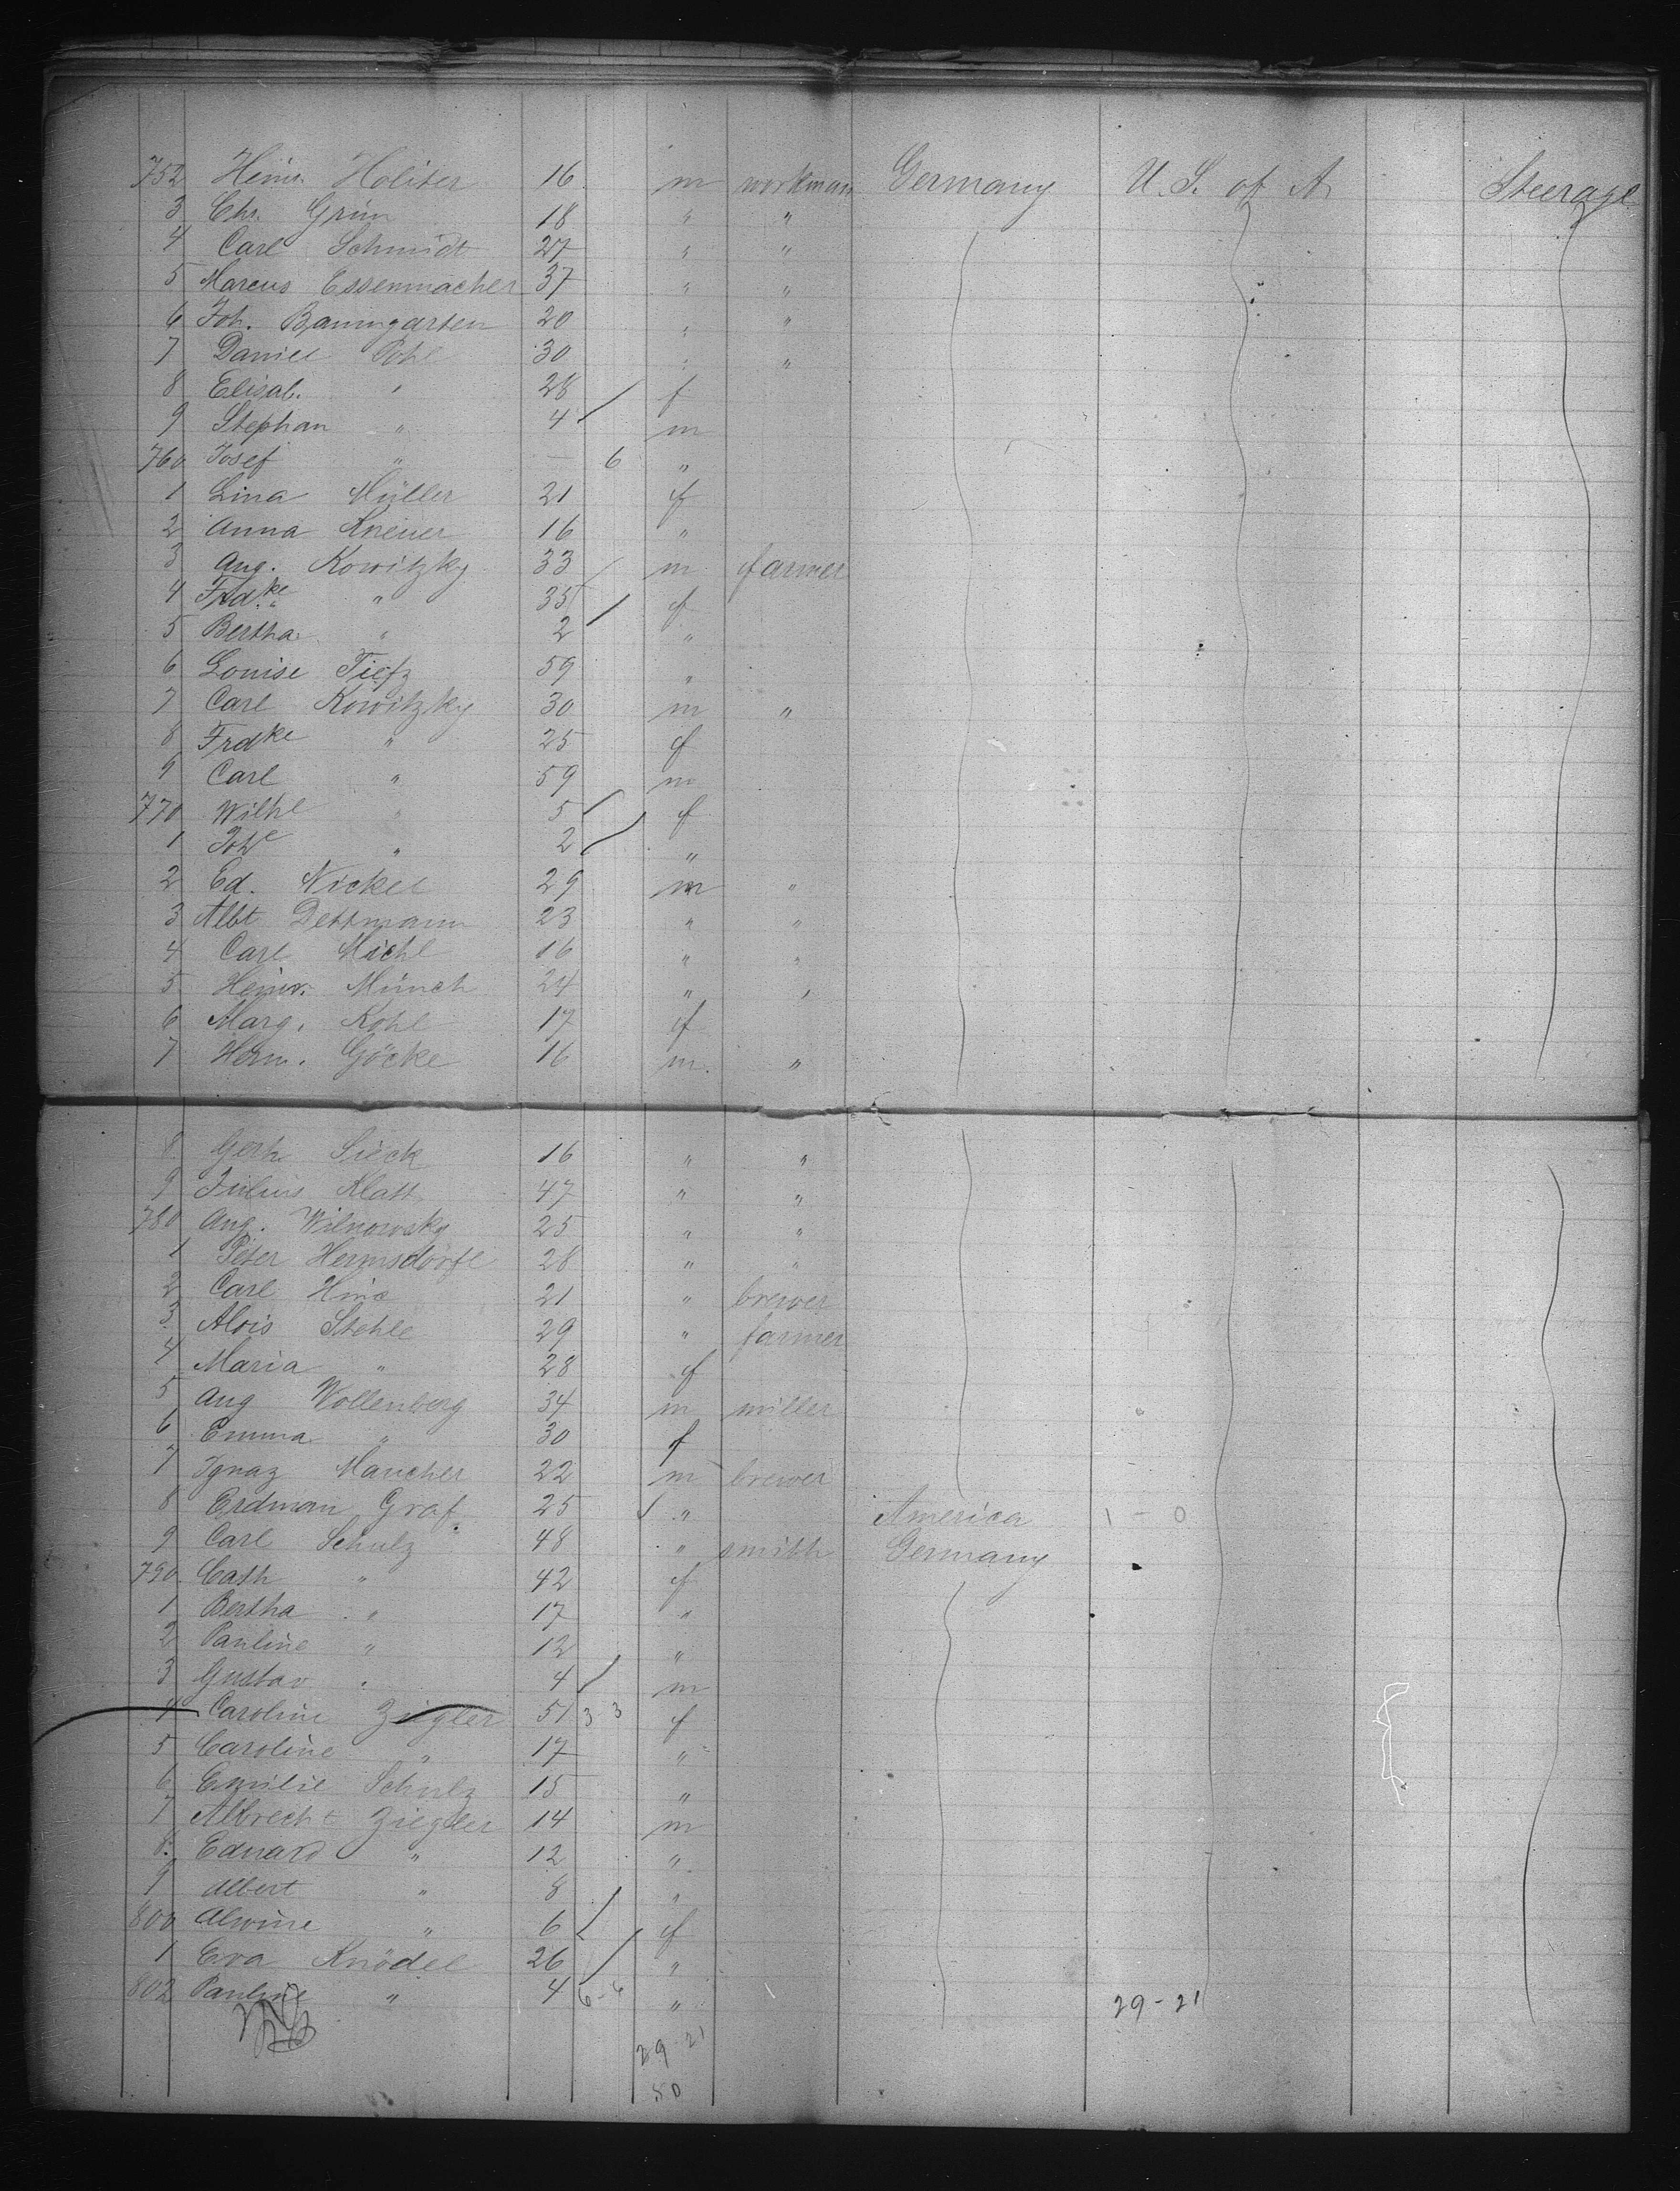 752 Heinr. Holiter 16 m workman Germany U. S. of A. Steerage
3 Chr. Grim 18 " "
4 Carl Schmidt 27 " "
5 Marcus Essenmacher 37 " "
6 Joh. Baumgarten 20 " "
7 Daniel Pohl 30 " "
8 Elisab. " 28 f
9 Stephan " 4 m
760 Josef " — 6 "
1 Lina Müller 21 f
2 Anna Kneuer 16 "
3 Aug. Kowitzky 33 m farmer
4 Frdke " 35 f
5 Bertha " 2 "
6 Louise Tietz 59 "
7 Carl Kowitzky 30 m "
8 Frdke " 25 f
9 Carl " 59 m
770 Wilhe " 5 f
1 Johe " 2 "
2 Ed. Nickel 29 m "
3 Albt Dettmann 23 " "
4 Carl Michl 16 " "
5 Heinr. Münch 24 " "
6 Marg. Kohl 17 f
7 Herm. Göcke 16 m. "
8 Gerh. Sieck 16 " "
9 Julius Klatt 47 " "
780 Aug. Wilnowsky 25 " "
1 Peter Hermsdörfl 28 " "
2 Carl 21 " brewer
3 Alois Stehle 29 " farmer
4 Maria " 28 f
5 Aug Wollenberg 34 m miller
6 Emma " 30 f
7 Ignaz Maucher 22 m brewer
8 Erdman Graf. 25 " America 1 - 0
9 Carl Schulz 48 " smith Germany
790 Cath " 42 f
1 Bertha " 17 "
2 Pauline " 12 "
3 Gustav " 4 m
4 Caroline Ziegler 51 3 3 f
5 Caroline " 17 "
6 Emilie Schulz 15 "
7 Albrecht Ziegler 14 m
8. Eduard " 12 "
9 Albert " 8 "
800 Alwine " 6 f
1 Eva Knödel 26 "
802 Pauline " 4 6-6 " 29-21
29-21
50